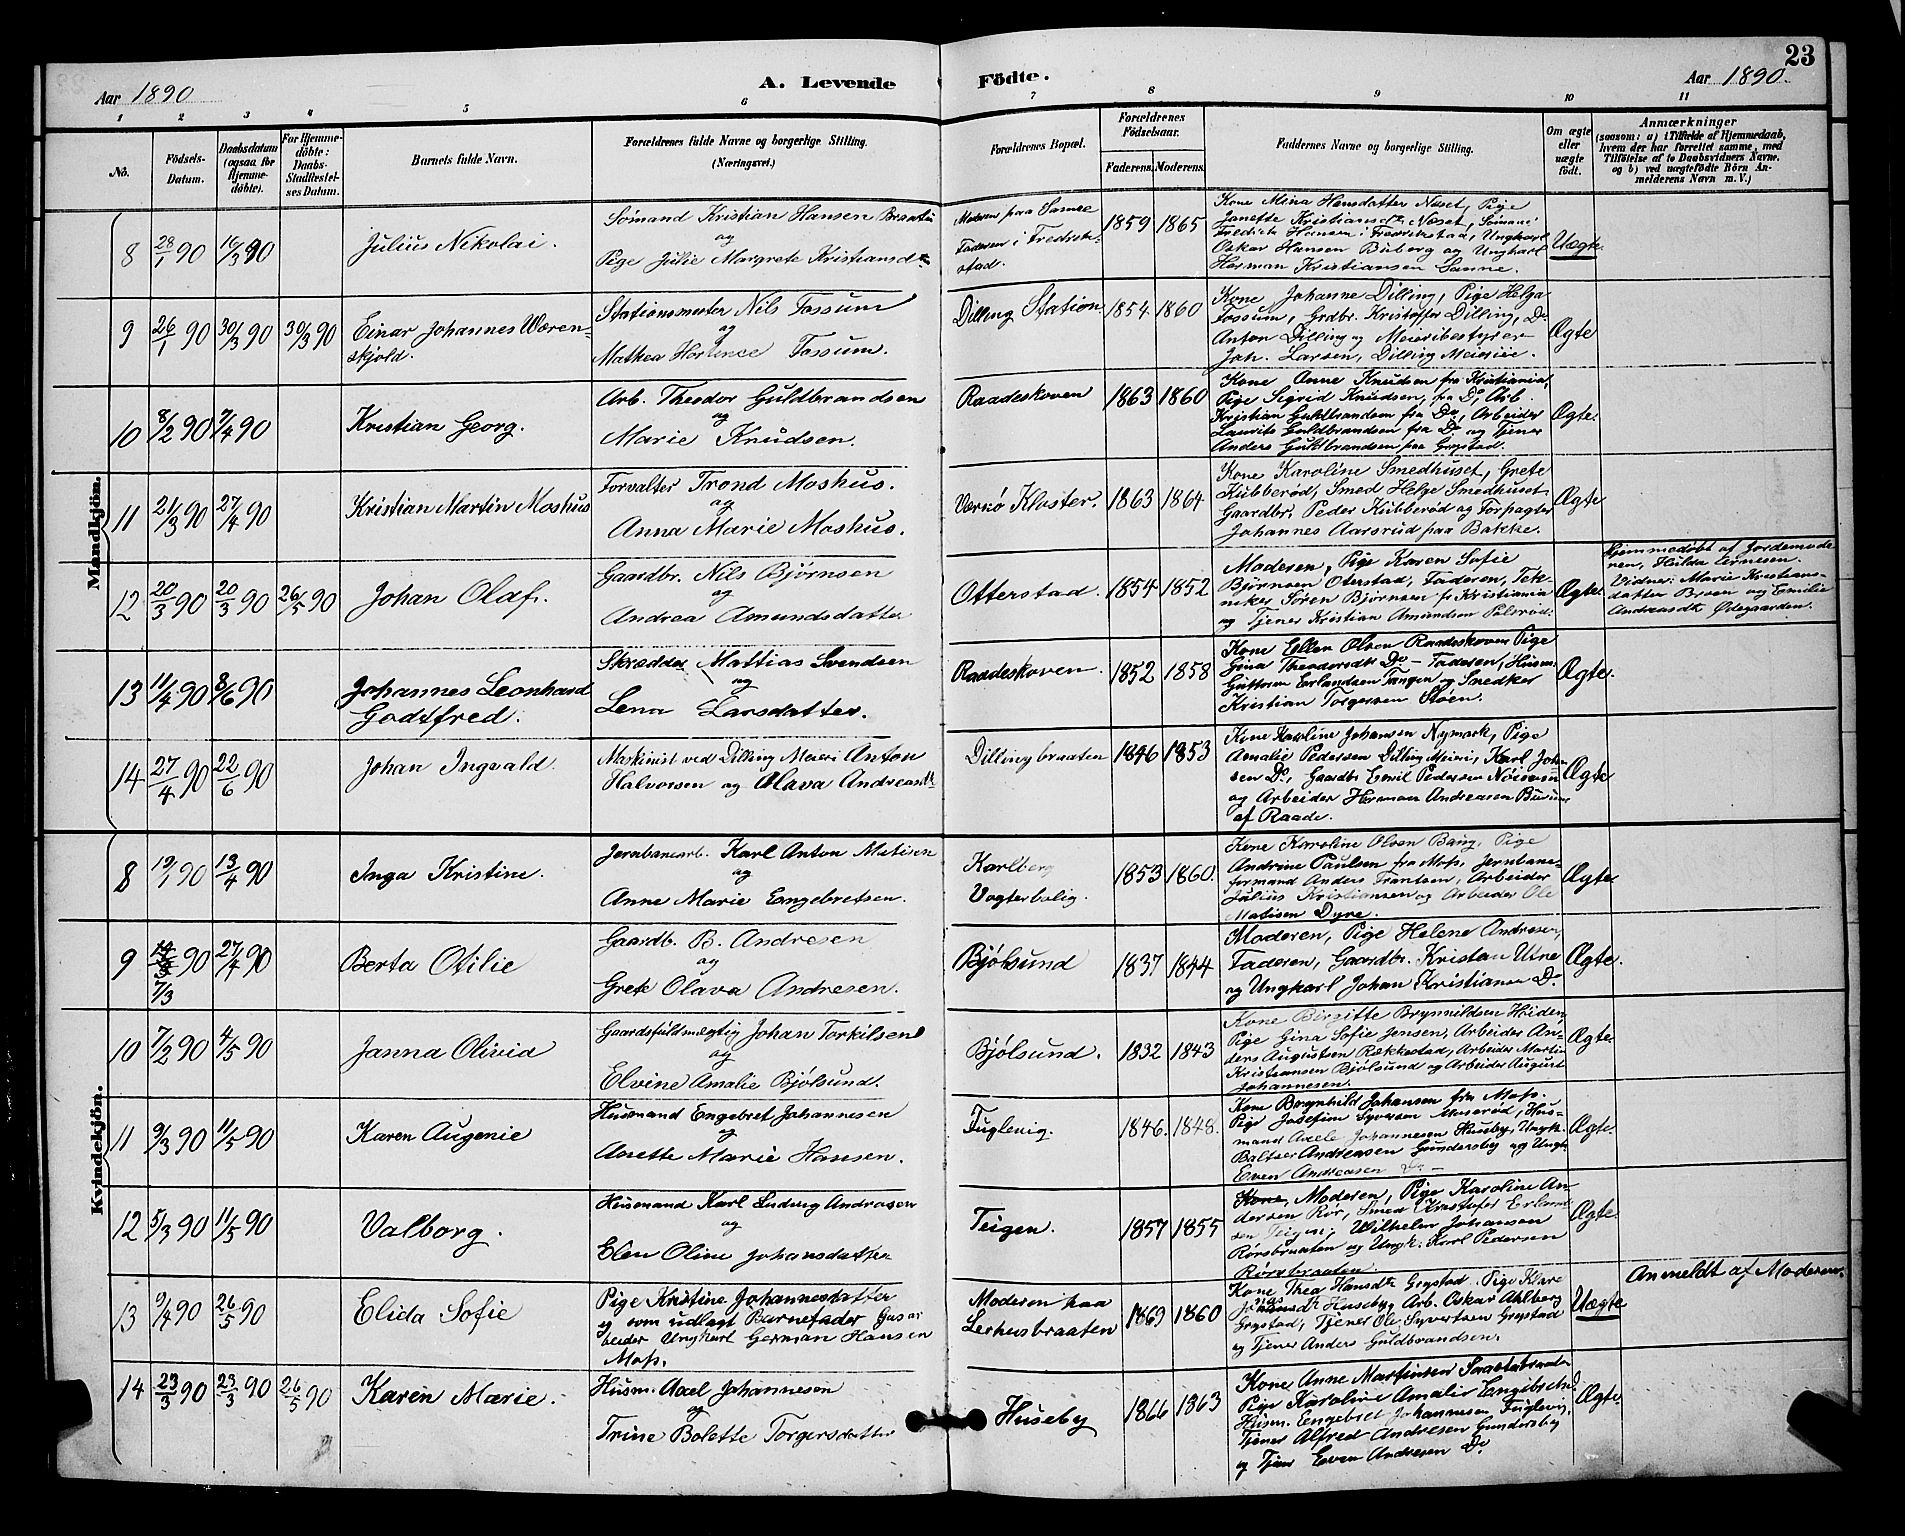 23
Aar 1890
A. Levende Födte.
Aar 1890
1 2 3 4 5 6 7 8 9 10 11
No.
Födsels-
Datum.
Daabsdatum
(ogsaa for
Hjemme-
döbte).
For Hjemme-
döbte:
Daabs-
Stadfæstel-
ses Datum.
Barnets fulde Navn.
Forældrenes fulde Navne og borgerlige Stilling.
(Næringsvei.)
Forældrenes Bopæl.
Forældrenes
Födselsaar.
Faderens. Moderens.
Faddernes Navne og borgerlige Stilling.
Om ægte
eller
uægte
födt.
Anmærkninger
(saasom: a) i Tilfælde af Hjemmedaab,
hvem der har forrettet samme, med
Tilföielse af to Daabsvidners Navne.
og b) ved uægtefödte Börn An-
melderens Navn m. V.)
Mandkjön.
8 28/1 90 16/3 90
Julius Nikolai.
Sømand Kristian Hansen
og
Pige Julie Margrete Kristiansdtr
Moderen paa Sanne
Faderen i Fredrik-
stad.
1859 1865
Kone Mina Hansdatter Næset, Pige
Janette Kristiansdtr Næset, Sømand
Fredrik Hansen i Fredrikstad, Ungkarl
Oskar Hansen Buberg og Ungkarl
Herman Kristiansen Sanne.
Uægte
9 26/1 90 30/3 90 30/3 90
Einar Johannes Wæren-
skjold.
Stationsmester Nils Fossum
og
Mathea Hortence Fossum.
Dilling Station
1854 1860
Kone Johanne Dilling, Pige Helga
Fossum, Grdbr. Kristoffer Dilling, Do
Anton Dilling og Meieribestyrer
Joh. Larsen, Dilling Meieri.
Ægte
10 8/2 90 7/4 90
Kristian Georg.
Arb. Theodor Guldbrandsen
og
Marie Knudsen.
Raadeskoven
1863 1860
Kone Anne Knudsen fra Kristiania,
Pige Sigrid Knudsen, fra Do, Arb.
Kristian Guldbrandsen fra Do, Arbeider
Laurits Guldbrandsen fra Do og Tjener
Anders Guldbrandsen paa Grystad.
Ægte.
11 21/3 90 27/4 90
Kristian Martin Moshus
Forvalter Trond Moshus.
og
Anna Marie Moshus.
Værnø Kloster.
1863 1864
Kone Karoline Smedhuset, Grete
Kubberød, Smed Helge Smedhuset
Gaardbr. Peder Kubberød og Forpagter
Johannes Aarsrud paa Bakke.
Ægte
12 20/3 90 20/3 90 26/5 90
Johan Olaf.
Gaardbr. Nils Bjørnsen
og
Andrea Amundsdatter
Otterstad.
1854 1852
Moderen, Pige Karen Sofie
Bjørnsen Oterstad, Faderen, Tek-
niker Søren Bjørnsen fr Kristiania
og Tjener Kristian Amundsen Pålsrød.
Ægte
Hjemmedøbt af Jordemode-
ren, Hilda Ernesen.
Vidner: Marie Kristians-
datter Breen og Emilie
Andreasdtr Ødegaarden.
13 11/4 90 8/6 90
Johannes Leonhard
Godtfred.
Skrædder Mattias Svendsen
og
Lena Larsdatter.
Raadeskoven.
1852 1858
Kone Ellen Olsen Raadeskoven Pige
Gina Theodorsdtr Do – Faderen, Husm.
Guttorm Erlandsen Tangen og Snedker
Kristian Torgersen Støen.
Ægte.
14 27/4 90 22/6 90
Johan Ingvald.
Maskinist ved Dilling Meieri Anton
Halvorsen og Olava Andreasdtr
Dillingbraaten
1846 1853
Kone Karoline Johansen Nymark, Pige
Amalie Pedersen Dilling Meieri, Karl Johan-
sen Do, Gaardbr Emil Pedersen
og Arbeider Herman Andreasen
af Raade.
Ægte
Kvindekjön.
8 90 13/4 90
Inga Kristine.
Jernbanearb. Karl Anton Matisen
og
Anne Marie Engebretsen.
Karlberg
Vogterbolig.
1853 1860.
Kone Karoline Olsen Bang, Pige
Andrine Paulsen fra Moss, Jernbane-
formand Anders Frantsen, Arbeider
Julius Kristiansen og Arbeider Ole
Matisen Dyre.
Ægte
9 90 27/4 90
7/3
Berta Otilie
Gaardb. B. Andresen
og
Grete Olava Andresen.
Bjølsund
1837 1844
Moderen, Pige Helene Andresen,
Faderen, Gaardbr. Kristan Utne
og Ungkarl Johan Kristiansen Do
Ægte.
10 7/2 90 4/5 90
Janna Olivia
Gaardsfuldmægtig Johan Torkilsen
og
Elvine Amalie Bjølsund.
Bjølsund.
1832 1843
Kone Birgitte Brynnildsen Heiden
Pige Gina Sofie Jensen, Arbeider An-
ders Augustsen Rækkestad, Arbeider Martin
Kristiansen Bjølsund og Arbeider August
Johannesen.
Ægte
11 9/3 90 11/5 90
Karen Augenie
Husmand Engebret Johannesen
og
Anette Marie Hansen.
Fuglevig.
1846. 1848.
Kone Brynhild Johansen fra Moss.
Pige Josefine Syversen Huserød, Hus-
mand Axel Johannesen Huseby, Ungk.
Baltser Andreasen Gundersby og Ungk
Even Andreasen Do –
Ægte.
12 5/3 90 11/5 90
Valborg.
Husmand Karl Ludvig Andresen
og
Elen Oline Johansdatter
Teigen.
1857 1855
Kone, Moderen, Pige Karoline An-
dersen Rør, Smed Kristofer Erland-
sen Teigen, Wilhelm Johansen
Rørsbraaten og Ungk. Karl Pedersen
Rørsbraaten.
Ægte.
13 9/4 90 26/5 90
Elida Sofie
Pige Kristine Johannesdatter
og som udlagt Barnefader Gasar
beider Ungkarl German Hansen
Moss.
Moderen paa
Lerhusbraaten
1869 1860
Kone Thea Hansdtr Grystad. Pige Klare
Huseby, Arb. Oskar Ahlberg
Grystad, Tjener Ole Syvertsen Grystad
og Tjener Anders Guldbrandsen.
Uægte
Anmeldt af Moderen.
14 23/3 90 23/3 90 26/5 90
Karen Marie.
Husm. Axel Johannesen
og
Trine Bolette Torgersdatter
Huseby
1866 1863
Kone Anne Martinsen
Pige Karoline Amalie Engebretsd
Husm. Engebret Johannesen Fuglevig,
Tjener Alfred Andresen Gundersby
og Tjener Even Andresen Do
Ægte.